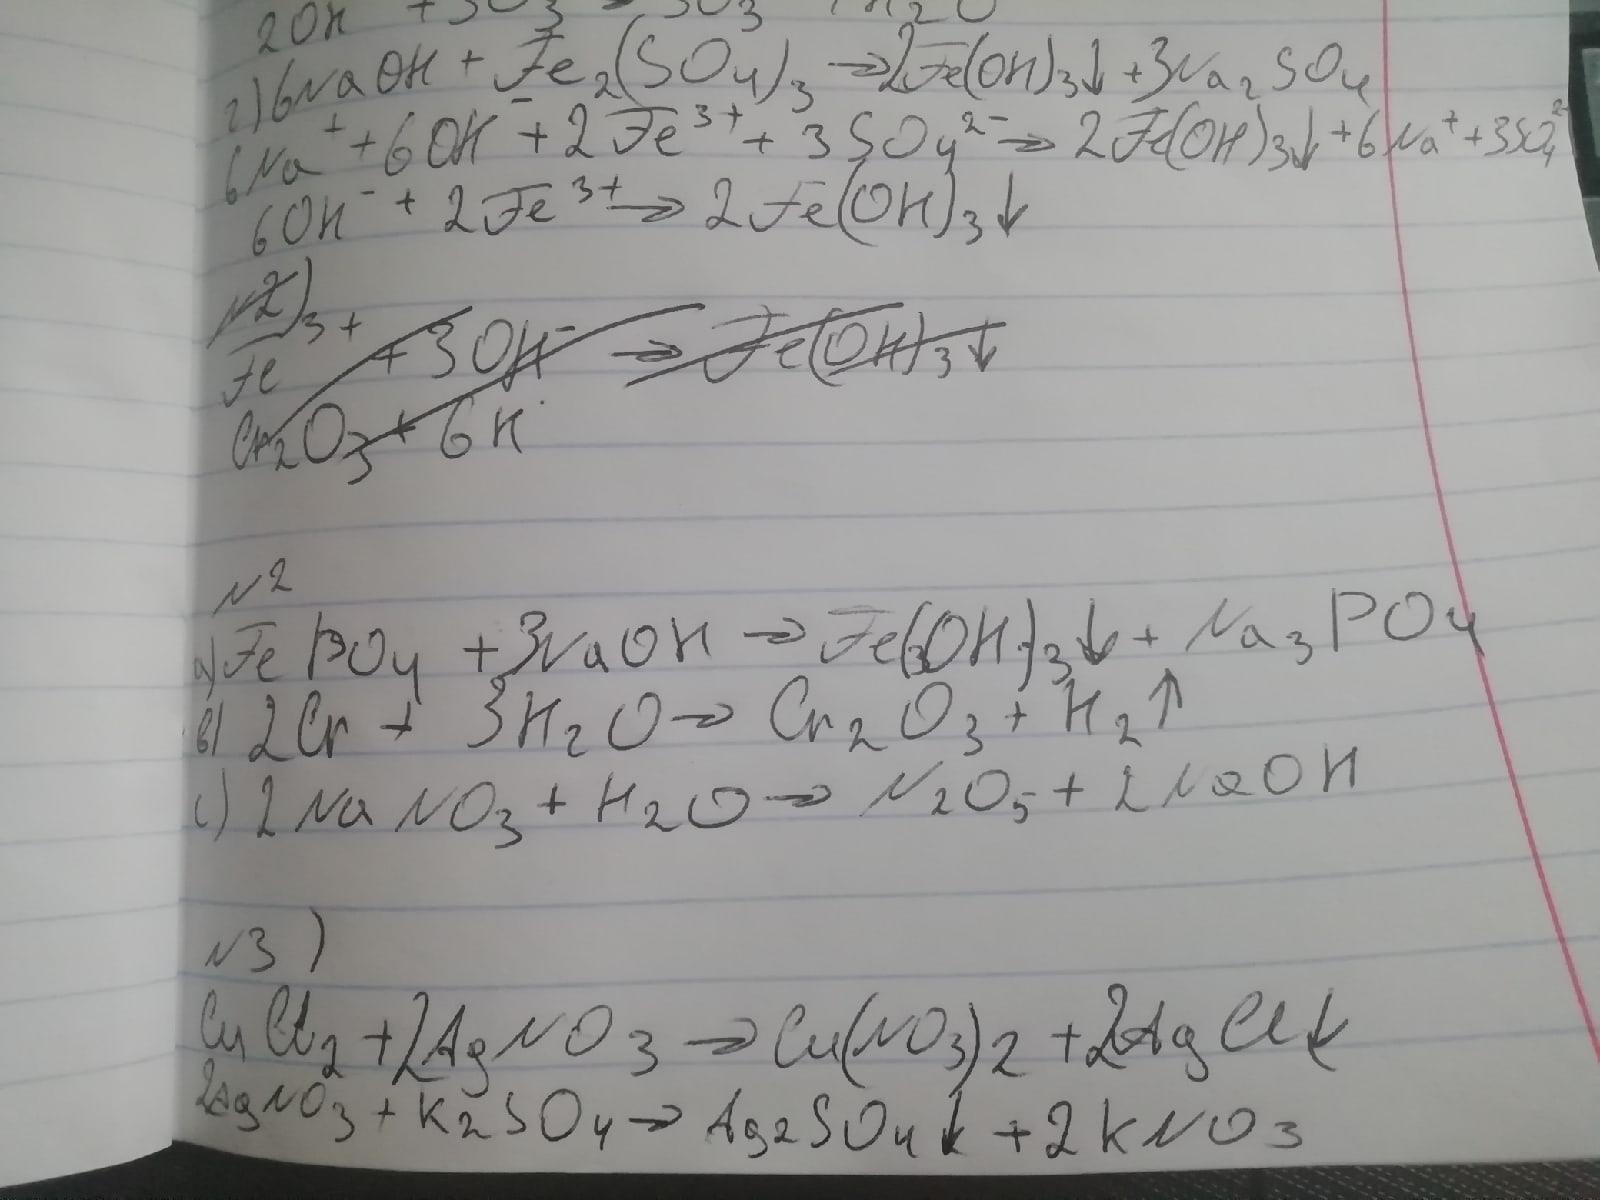 2OH + SO3 SO3 H2O
г) 6NaOH + Fe2(SO4)3 → 2Fe(OH)3↓ + 3Na2SO4
6Na⁺ + 6OH⁻ + 2Fe³⁺ + 3SO4²⁻ → 2Fe(OH)3↓ + 6Na⁺ + 3SO4²⁻
6OH⁻ + 2Fe³⁺ → 2Fe(OH)3↓
№2)
Fe³⁺ + 3OH⁻ → Fe(OH)3↓
Cr2O3 + 6H
№2
a) FePO4 + 3NaOH → Fe(OH)3↓ + Na3PO4
в) 2Cr + 3H2O → Cr2O3 + H2↑
c) 2NaNO3 + H2O → N2O5 + 2NaOH
№3)
CuCl2 + 2AgNO3 → Cu(NO3)2 + 2AgCl↓
2AgNO3 + K2SO4 → Ag2SO4↓ + 2KNO3